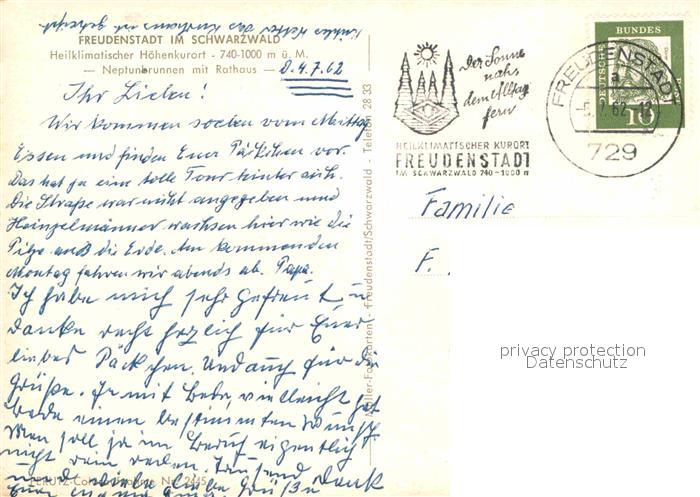 FREUDENSTADT IM SCHWARZWALD
Heilklimatischer Höhenkurort - 740-1000 m ü. M.
— Neptunbrunnen mit Rathaus —
D. 4.7.62
Ihr Lieben!
Wir kommen soeben vom Mittag
Essen und finden Euer Päckchen vor.
Das hat ja eine tolle Tour hinter sich.
Die Straße war nicht angegeben und
Heinzelmänner wachsen hier wie die
Pilze aus die Erde. Am kommenden
Montag fahren wir abends ab. Papa.
Ich habe mich sehr gefreut u.
danke recht herzlich für Euer
liebes Päckchen. Und auch für die
Grüße. Ja mit Bebe, vielleicht hat
Bebe einen bestimmten Wunsch.
Man soll ja im Beruf eigentlich
nicht rein reden. Tausend Dank
und viele liebe Grüße
PERUTZ-Color Nr. 2445
Müller-Fotokarten - Freudenstadt/Schwarzwald - Telefon 28 33
Der Sonne
nahe
dem Alltag
fern
HEILKLIMATISCHER KURORT
FREUDENSTADT
IM SCHWARZWALD 740-1000 m
FREUDENSTADT
a
7.62-12
729
BUNDES
10
Familie
F.
privacy protection
Datenschutz